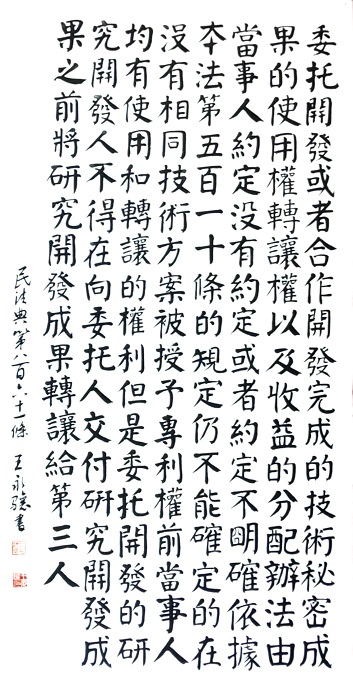 委托開發或者合作開發完成的技術秘密成
果的使用權轉讓權以及收益的分配辦法由
當事人約定没有約定或者約定不明確依據
本法第五百一十條的規定仍不能確定的在
没有相同技術方案被授予專利權前當事人
均有使用和轉讓的權利但是委托開發的研
究開發人不得在向委托人交付研究開發成
果之前將研究開發成果轉讓給第三人
民法典第八百六十一條 王永骧書